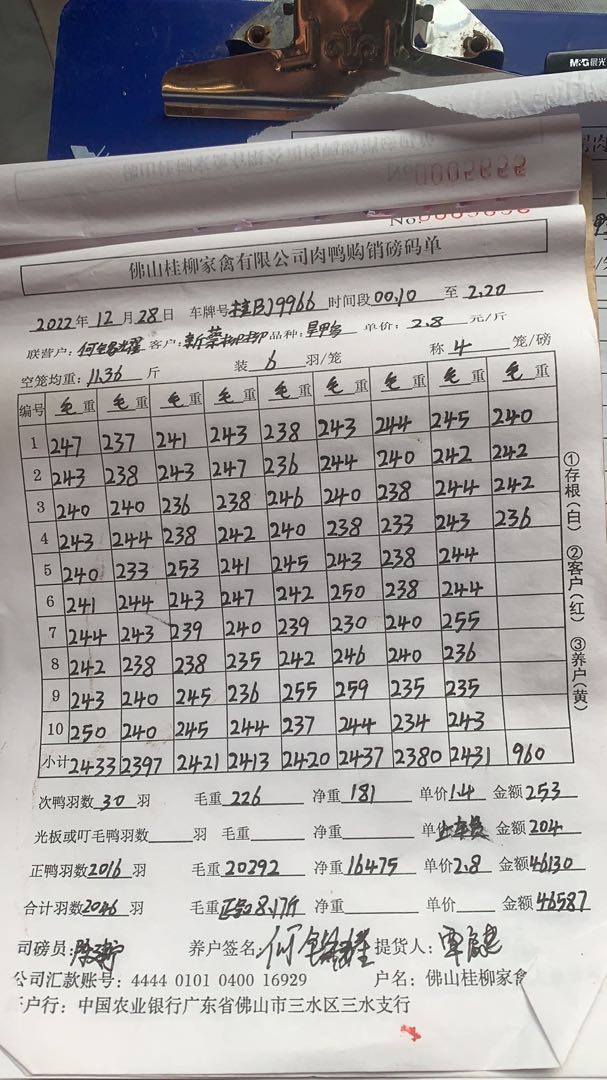 M&G晨光
0005693
No.
佛山桂柳家禽有限公司肉鸭购销磅码单
2022年 12月 28日 车牌号 桂BJ9966 时间段 00.10 至 2.20
联营户: 客户: 品种: 单价: 2.8 元/斤
空笼均重: 11.36 斤 装 6 羽/笼 称 4 笼/磅
编号 毛重 毛重 毛重 毛重 毛重 毛重 毛重 毛重 毛重
1 247 237 241 243 238 243 244 245 240
2 243 238 243 247 236 244 240 242 242
3 240 240 236 238 246 240 238 244 242
4 243 244 238 242 240 238 233 243 236
5 240 233 253 241 245 243 238 244
6 241 244 243 247 242 250 238 244
7 244 243 239 240 239 230 240 255
8 242 238 238 235 242 246 240 236
9 243 240 245 236 255 259 235 235
10 250 240 245 244 237 244 234 243
小计 2433 2397 2421 2413 2420 2437 2380 2431 960
①存根(白) ②客户(红) ③养户(黄)
次鸭羽数 30 羽 毛重 226 净重 181 单价 1.4 金额 253
光板或叮毛鸭羽数 羽 毛重 净重 单价 金额 204
正鸭羽数 2016 羽 毛重 20292 净重 16475 单价 2.8 金额 46130
合计羽数 2046 羽 毛重 正 8.17斤 净重 单价 金额 46587
司磅员: 养户签名: 提货人:
公司汇款账号: 4444 0101 0400 16929 户名: 佛山桂柳家禽
户行: 中国农业银行广东省佛山市三水区三水支行